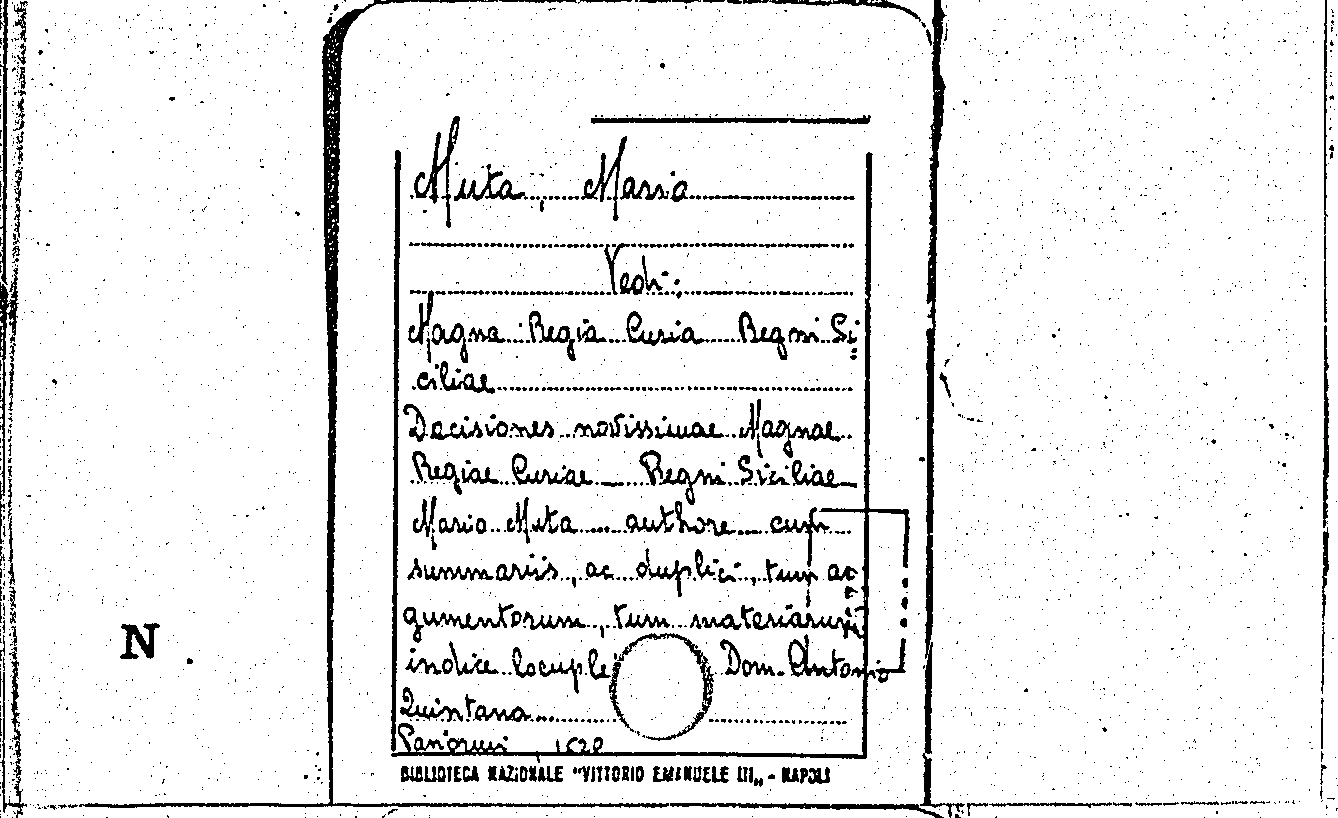 Muta, Mario
Vedi:
Magna Regia Curia Regni Si=
ciliae
Decisiones novissimae Magnae
Regiae Curiae Regni Siciliae
Mario Muta ... authore ... cum
summariis, ac duplici, tum ar=
gumentorum, tum materiarum
indice locuple Dom. Antonio
Quintana...
Panormi
N.
BIBLIOTECA NAZIONALE "VITTORIO EMANUELE III„ - NAPOLI